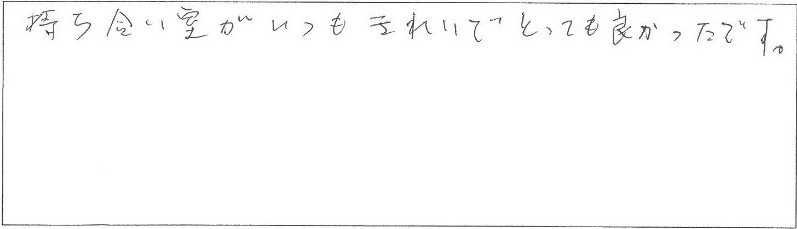 持ち合い室がいつもきれいでとっても良かったです。